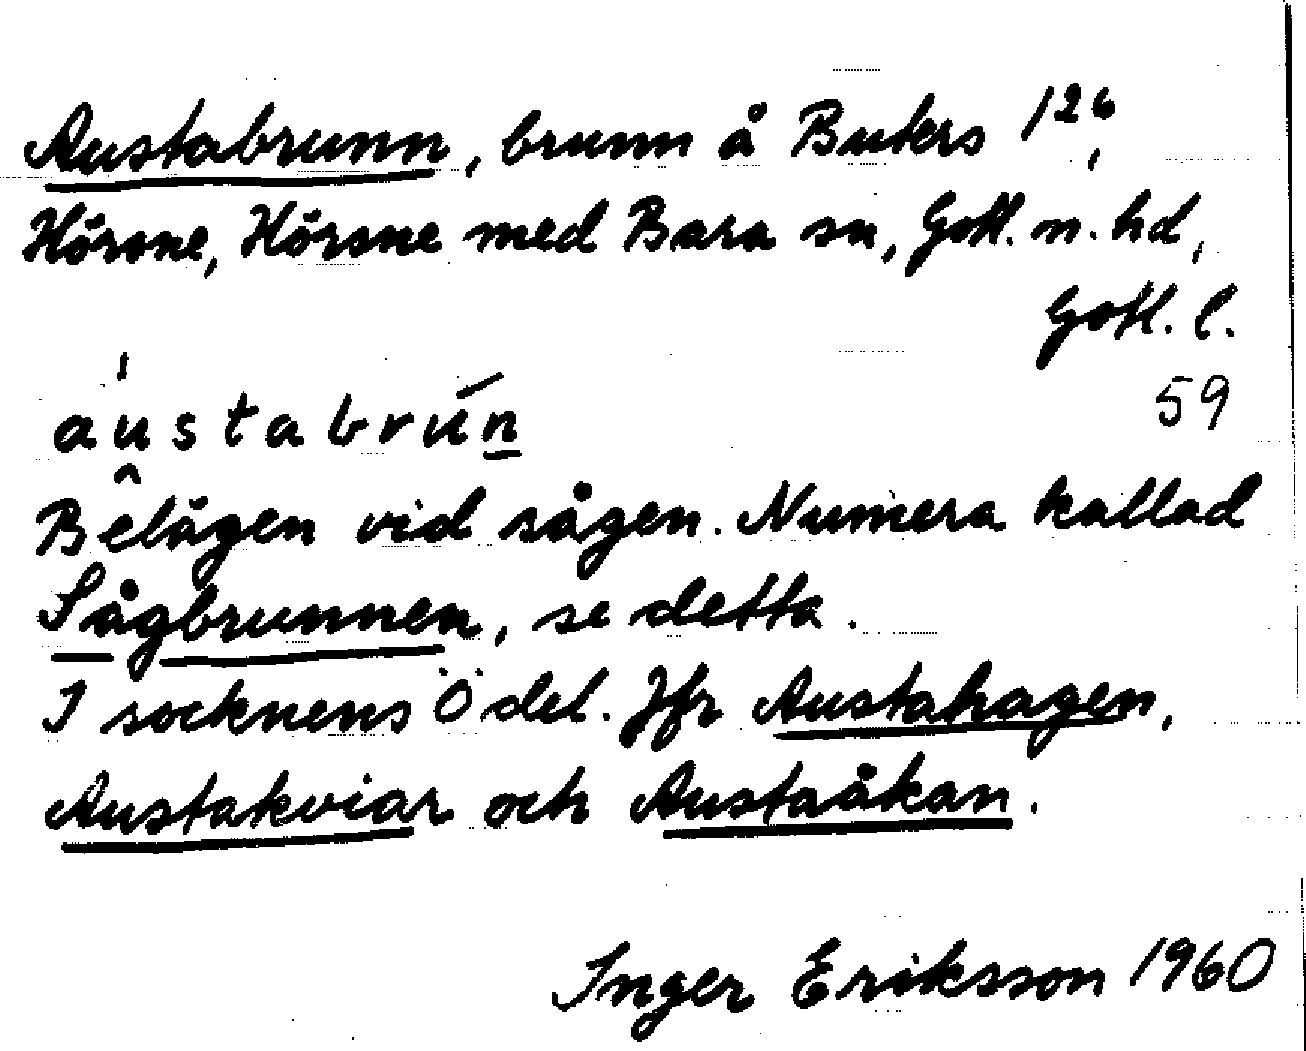 Austabrunn, brunn å Buters 1²⁶,
Hörsne, Hörsne med Bara sn, Gotl. n. hd,
Gotl. l.
59
au̯stabrún̲
Belägen vid sågen. Numera kallad
Sågbrunnen, se detta.
I socknens Ö del. Jfr Austahagen,
Austakviar och Austaåkan.
Inger Eriksson 1960